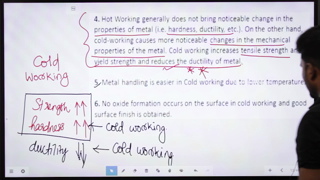 4. Hot Working generally does not bring noticeable change in the
properties of metal (i.e. hardness, ductility, etc.). On the other hand,
cold-working causes more noticeable changes in the mechanical
properties of the metal. Cold working increases tensile strength and
yield strength and reduces the ductility of metal.
5. Metal handling is easier in Cold working due to lower temperature
6. No oxide formation occurs on the surface in cold working and good
surface finish is obtained.
Cold
Working
Strength ↑↑
hardness ↑↑ ← Cold working
ductility ↓↓ ← Cold working